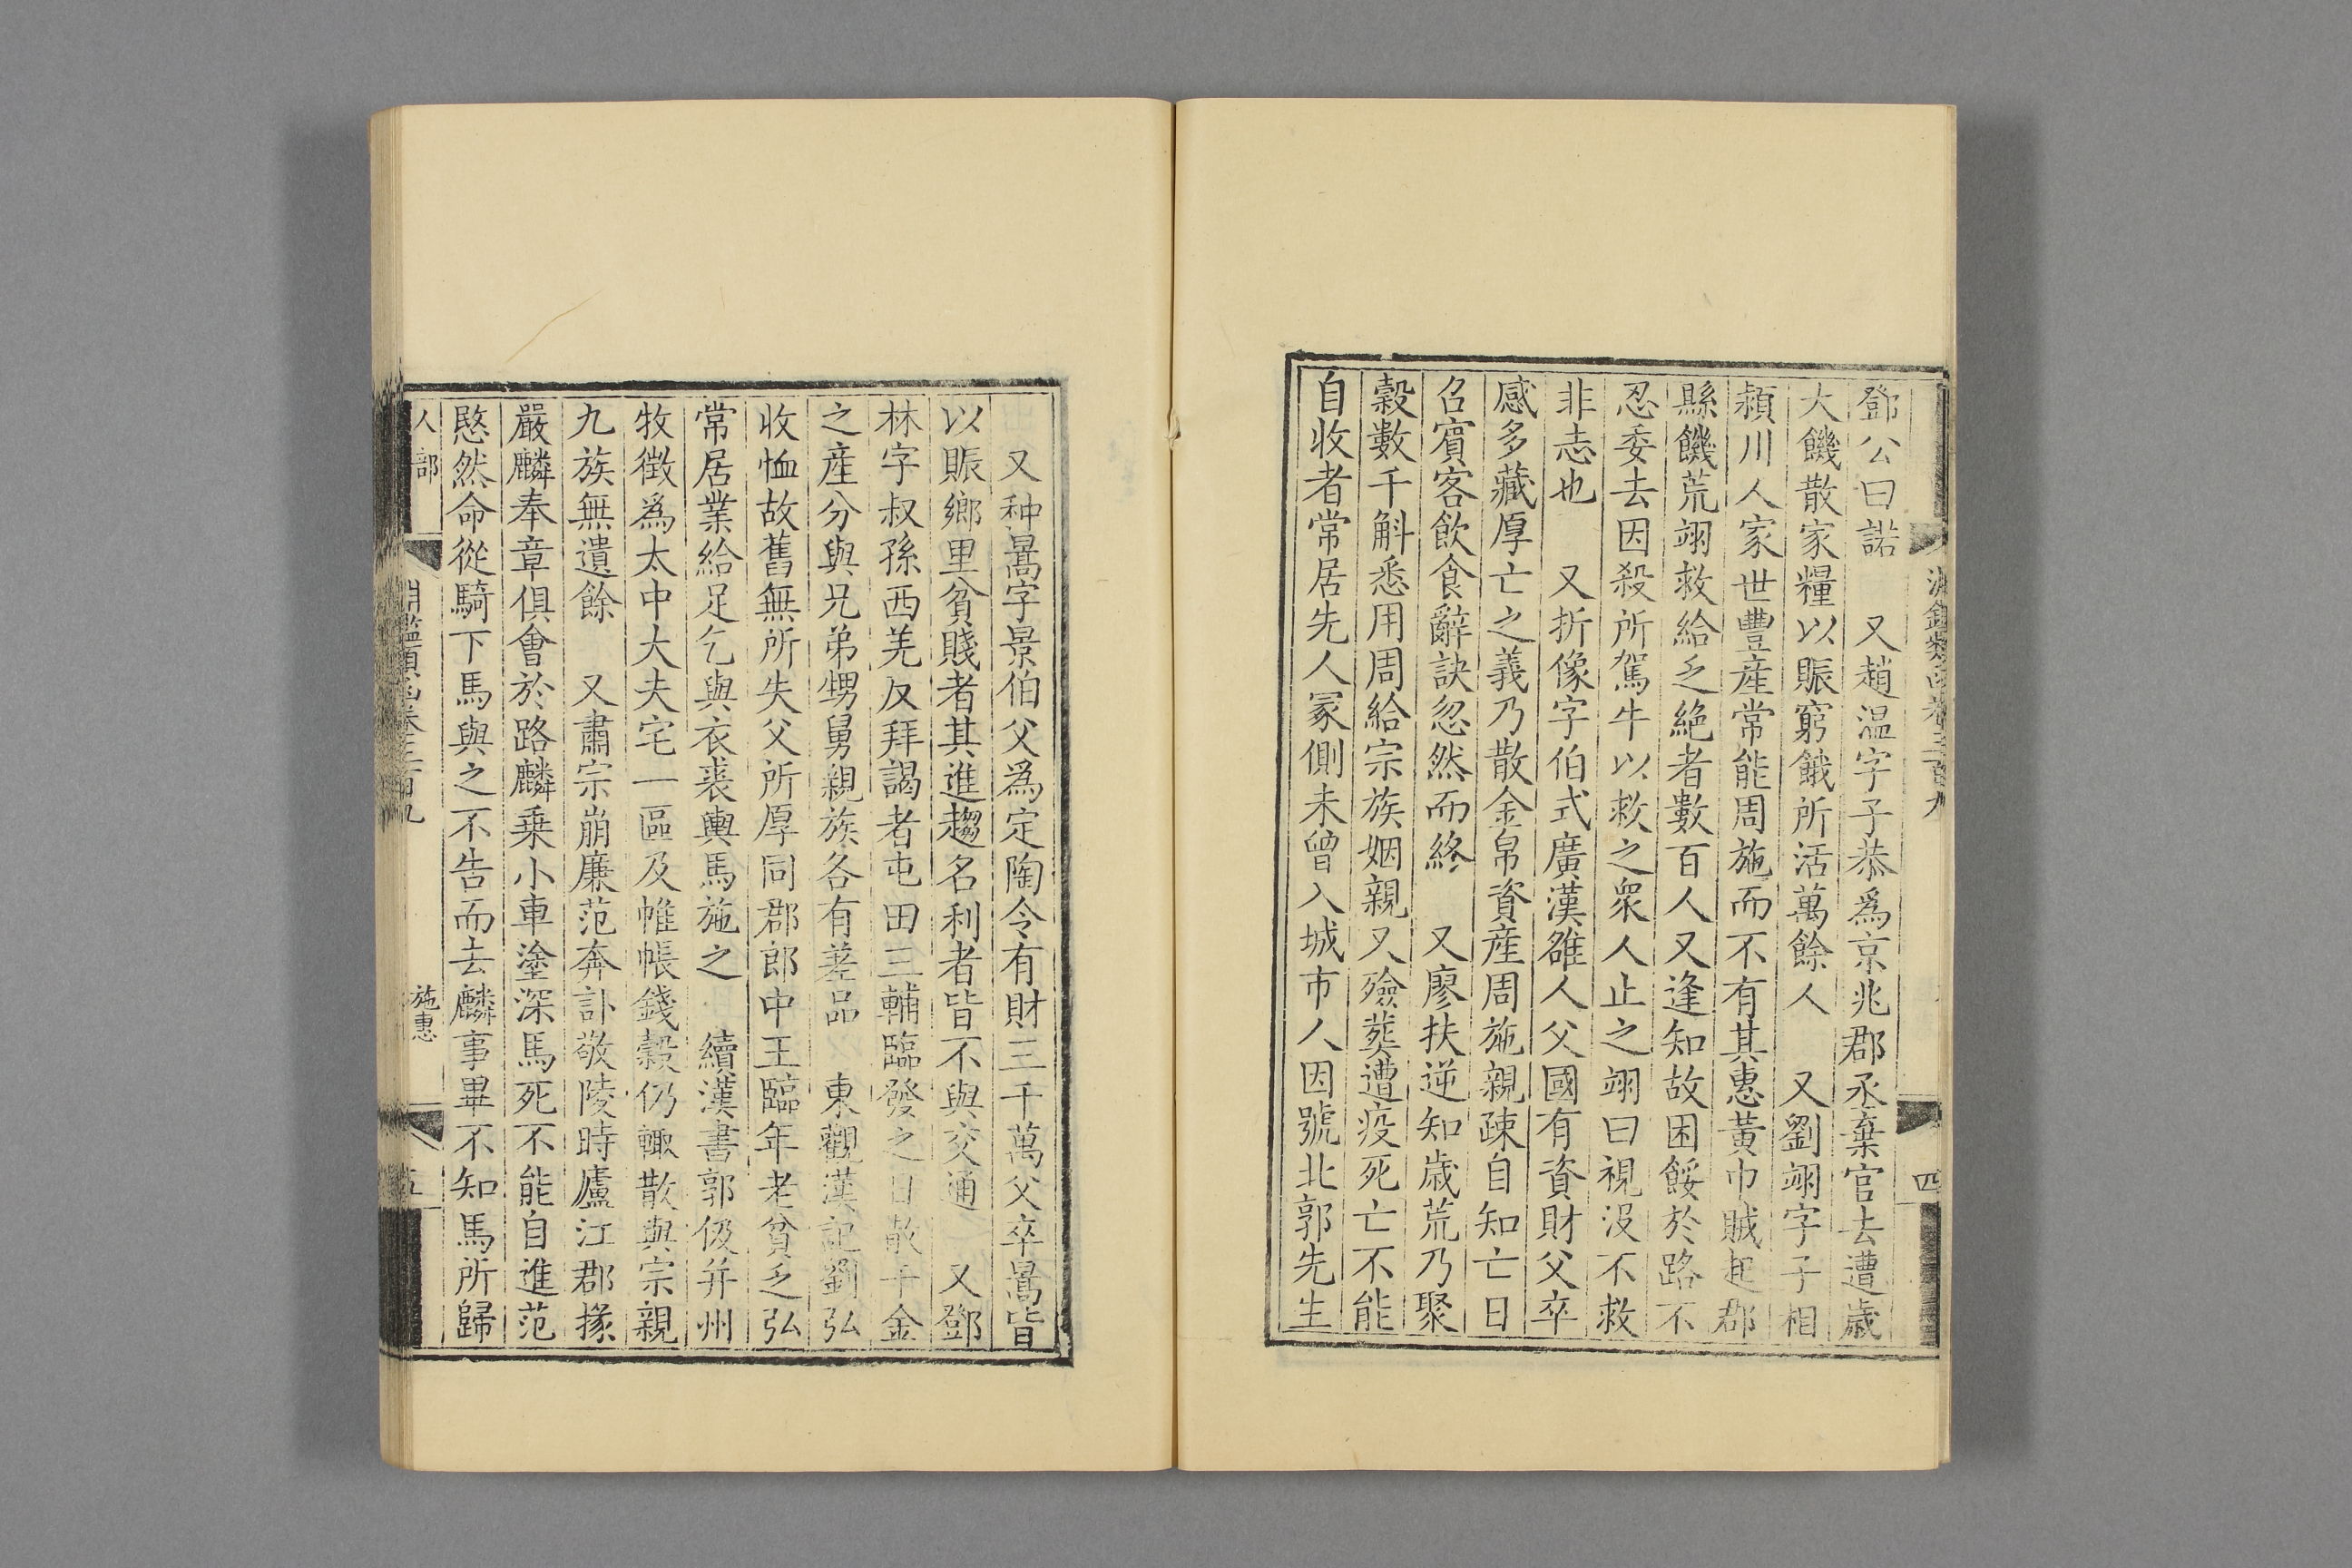 鄧公曰諾　又趙温字子恭爲京兆郡丞棄官去遭歲
大饑散家糧以賑窮餓所活萬餘人　又劉翊字子相
潁川人家世豐産常能周施而不有其惠黃巾賊起郡
縣饑荒翊救給乏絶者數百人又逢知故困餒於路不
忍委去因殺所駕牛以救之衆人止之翊曰視没不救
非志也　又折像字伯式廣漢雒人父國有資財父卒
感多藏厚亡之義乃散金帛資産周施親疎自知亡日
召賓客飲食辭訣忽然而終　又廖扶逆知歲荒乃聚
穀數千斛悉用周給宗族姻親又殮葬遭疫死亡不能
自收者常居先人冢側未曾入城市人因號北郭先生
四
又种暠字景伯父爲定陶令有財三千萬父卒暠皆
以賑鄉里貧賤者其進趨名利者皆不與交通　又鄧
林字叔孫西羌反拜謁者屯田三輔臨發之日散千金
之産分與兄弟甥舅親族各有差品　東觀漢記劉弘
收恤故舊無所失父所厚同郡郎中王臨年老貧乏弘
常居業給足乞與衣裘輿馬施之　續漢書郭伋并州
牧徵爲太中大夫宅一區及帷帳錢穀仍輙散與宗親
九族無遺餘　又肅宗崩廉范奔訃敬陵時廬江郡掾
嚴麟奉章俱會於路麟乗小車塗深馬死不能自進范
愍然命從騎下馬與之不告而去麟事畢不知馬所歸
人部
施惠
五